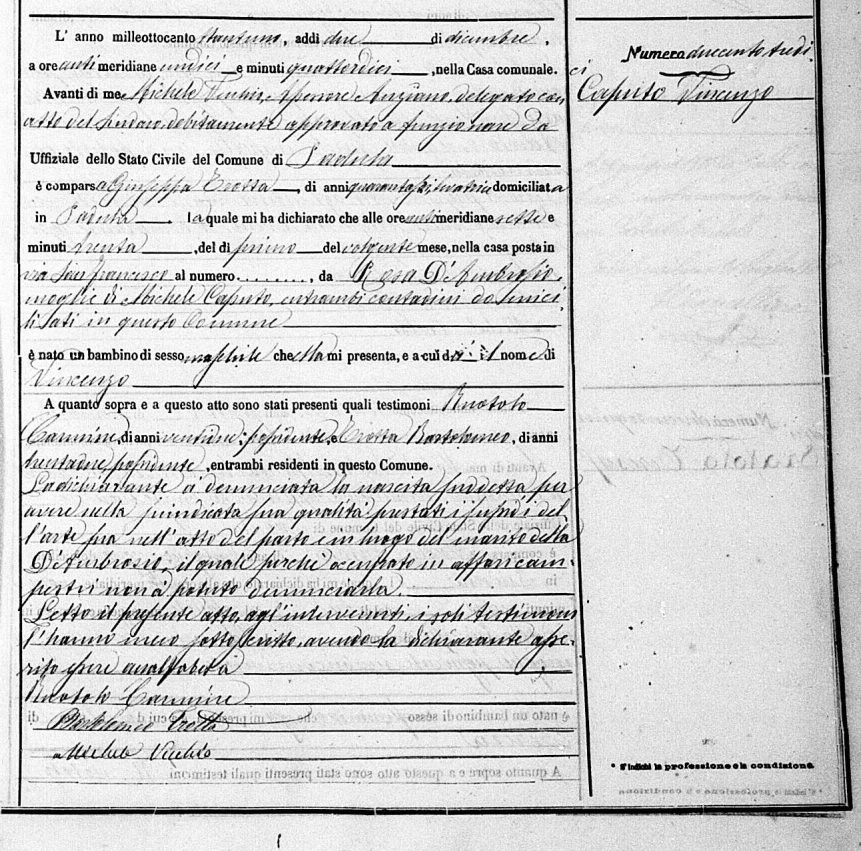 L' anno milleottocento ottantuno, addì due di dicembre,
a ore anti meridiane undici e minuti quattordici, nella Casa comunale.
Avanti di me Michele Vecchio, Assessore Anziano, delegato con
atto del Sindaco, debitamente approvato a funzionare da
Uffiziale dello Stato Civile del Comune di Padula
è comparsa Giuseppa Trotta, di anni quarantasei, levatrice domiciliata
in Padula la quale mi ha dichiarato che alle ore antimeridiane sette e
minuti trenta, del dì primo del volgente mese, nella casa posta in
via San Francesco al numero ........, da Rosa D'Ambrosio,
moglie di Michele Caputo, entrambi contadini domici-
liati in questo Comune
è nato un bambino di sesso maschile che ella mi presenta, e a cui dà il nome di
Vincenzo
A quanto sopra e a questo atto sono stati presenti quali testimoni Ruotolo
Carmine, di anni ventidue, possidente, e Trotta Bartolomeo, di anni
trentadue, possidente, entrambi residenti in questo Comune.
La dichiarante à denunciata la nascita suddetta per
avere nella qualità prestati i sussidi del
l'arte sua nell'atto del parto e in luogo del marito della
D'Ambrosio, il quale perchè occupato in affari cam-
pestri non à potuto denunciarla.
Letto il presente atto, agl'intervenuti, i soli testimoni
l'hanno meco sottoscritto, avendo la dichiarante asse-
rito essere analfabeta
Ruotolo Carmine
Bartolomeo Trotta
Michele Vecchio
Numero duecentotredi-
ci
Caputo Vincenzo
* S'indichi la professione o la condizione